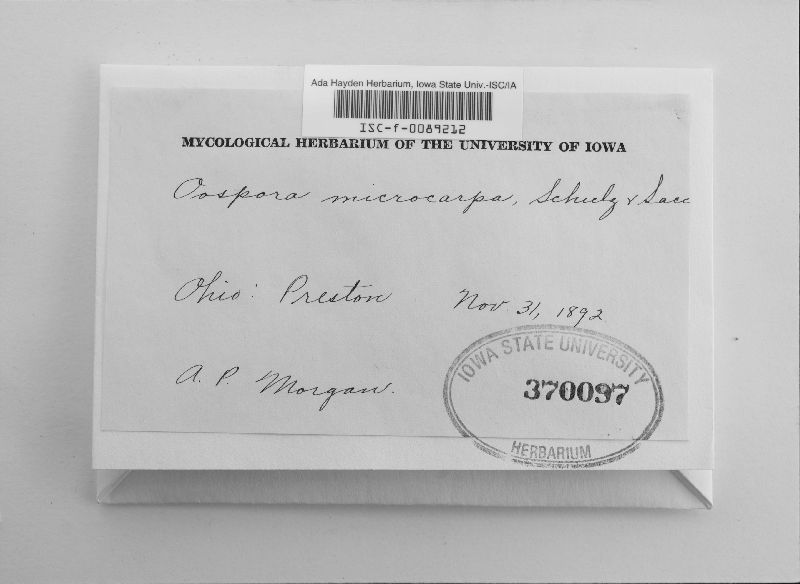 Ada Hayden Herbarium, Iowa State Univ.-ISC/IA
ISC-f-0089212
MYCOLOGICAL HERBARIUM OF THE UNIVERSITY OF IOWA
Oospora microcarpa, Schulz & Sacc
Ohio: Preston Nov. 31, 1892
A. P. Morgan.
IOWA STATE UNIVERSITY
370097
HERBARIUM